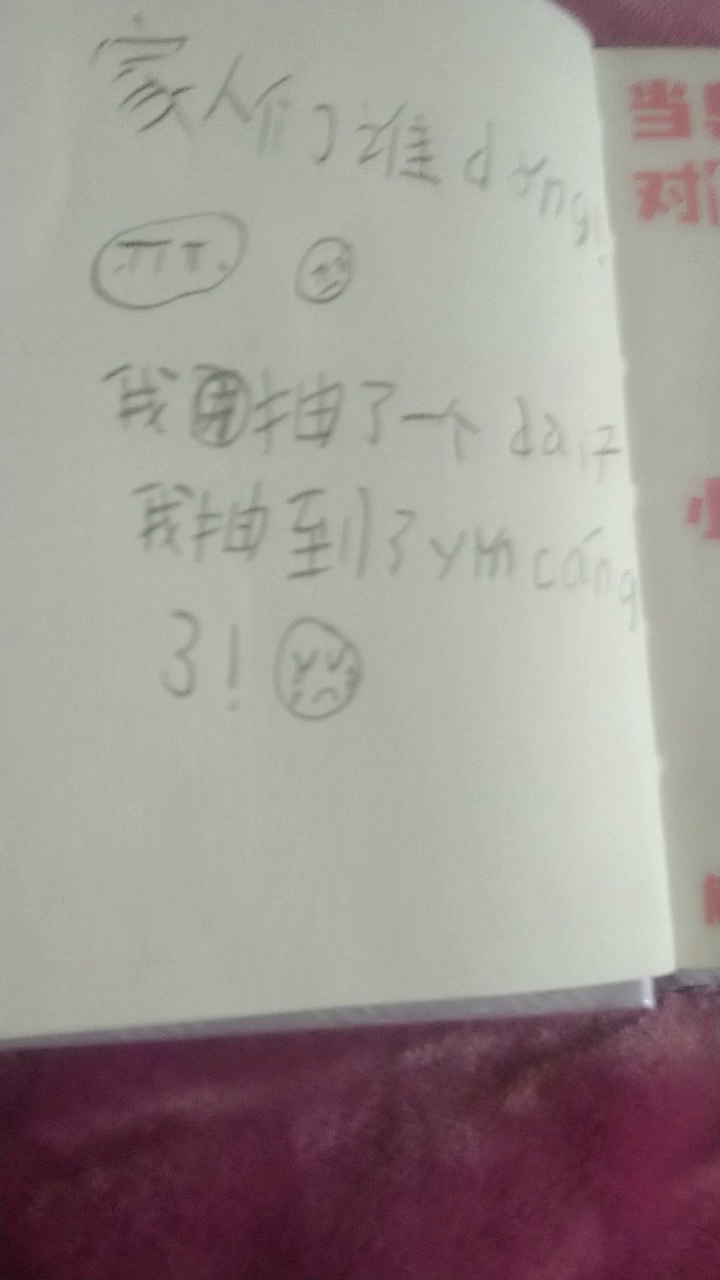 家人们谁dǒng!
TT T.
我抽了一个dai
我抽到了yǐn cáng
了!
当
对